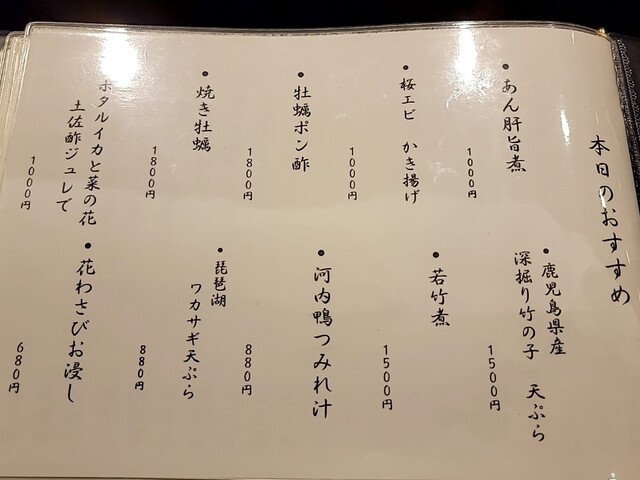 本日のおすすめ
・あん肝旨煮
1000円
・桜エビ かき揚げ
1000円
・牡蠣ポン酢
1800円
・焼き牡蠣
1800円
ホタルイカと菜の花
土佐酢ジュレで
1000円
・鹿児島県産
深掘り竹の子 天ぷら
1500円
・若竹煮
1500円
・河内鴨つみれ汁
880円
・琵琶湖
ワカサギ天ぷら
880円
・花わさびお浸し
680円